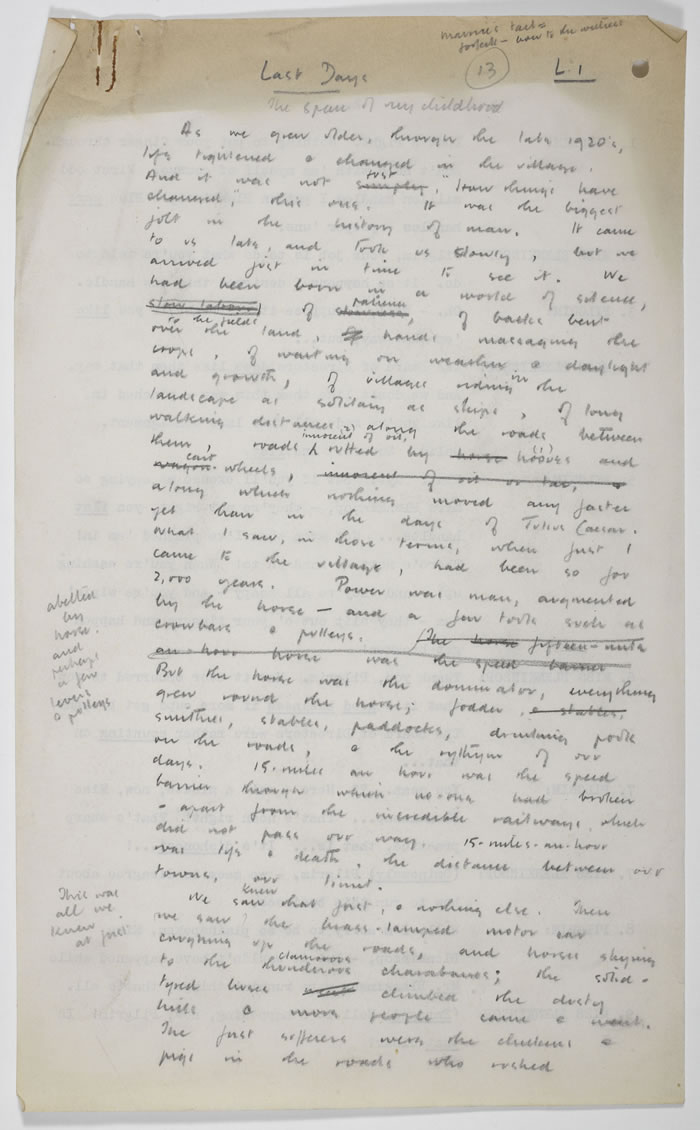 Marnie's
how to die without
13
L.1
Last Days
The span of my childhood
As we grew older, through the late 1920's,
life tightened & changed in the village.
just
And it was not simply, "how things have
changed", this was. It was the biggest
jolt in the history of man. It came
to us late, and took us slowly, but we
arrived just in time to see it. We
had been born in a world of silence,
patience
slow labour, of slowness, of backs bent
to the fields
over the land, of hands massaging the
crops, of waiting on weather & daylight
in
and growth, of villages riding the
landscape as solitary as ships, of long
walking distances along the roads between
innocent of oil,
them, roads rutted by horse hooves and
cart
wagon wheels, innocent of oil or tar, &
along which nothing moved any faster
yet than in the days of Julius Caesar.
What I saw, in those terms, when first I
came to the village, had been so for
2,000 years. Power was man, augmented
by the horse – and a few tools such as
crowbars & pulleys. The horse fifteen-mile
an hour horse was the speed barrier
abetted
by
horse.
and
perhaps
a few
levers
& pulleys
But the horse was the dominator, everything
grew round the horse; fodder, & stables,
smithies, stables, paddocks, drinking pools
on the roads, & the rythym of our
days. 15-miles an hour was the speed
barrier through which no-one had broken
- apart from the incredible railways, which
did not pass our way. 15-miles-an-hour
was life & death, the distance between our
towns, our limit.
This was
all we
knew
at first
knew
We saw that first, & nothing else. Then
we saw the brass-lamped motor car
coughing up the roads, and horses shying
clamorous
to the thunderous charabancs; the solid-
tyred buses climbed the dusty
hills & more people came & went.
The first sufferers were the chickens &
pigs in the roads who rushed